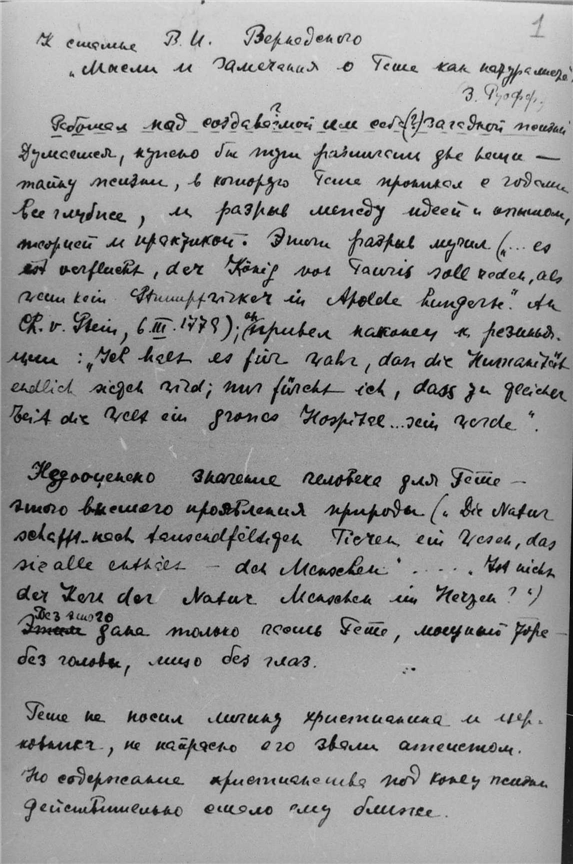 1
К статье В.И. Вернадского
"Мысли и замечания о Гете как натуралисте"
З. Руофф.
Работая над создаваемой(?) им себе(?) загадкой жизни
Думается, нужно бы тут различать две вещи —
тайну жизни, в которую Гете проникал с годами
все глубже, и разрыв между идеей и опытом,
теорией и практикой. Этот разрыв мучил ("... es
ist verflucht, der König von Tauris soll reden, als
wenn kein Strumpfwirker in Apolde hungerte." An
Ch. v. Stein, 6.III.1779); он привел наконец к резинья-
ции: "Ich halt es für wahr, dass die Humanität
endlich siegen wird; nur fürcht ich, dass zu gleicher
Zeit die Welt ein grosses Hospital... sein werde".
Недооценено значение человека для Гете —
этого высшего проявления природы ("Die Natur
schafft nach tausendfältigen Tieren ein Wesen, das
sie alle enthält — den Menschen" ..... Ist nicht
der Kern der Natur Menschen im Herzen?")
Без этого дана только часть Гете, мощный торс —
без головы, лицо без глаз.
Гете не носил личину христианина и цер-
ковника, не напрасно его звали атеистом.
Но содержание христианства под конец жизни
действительно стало ему ближе.